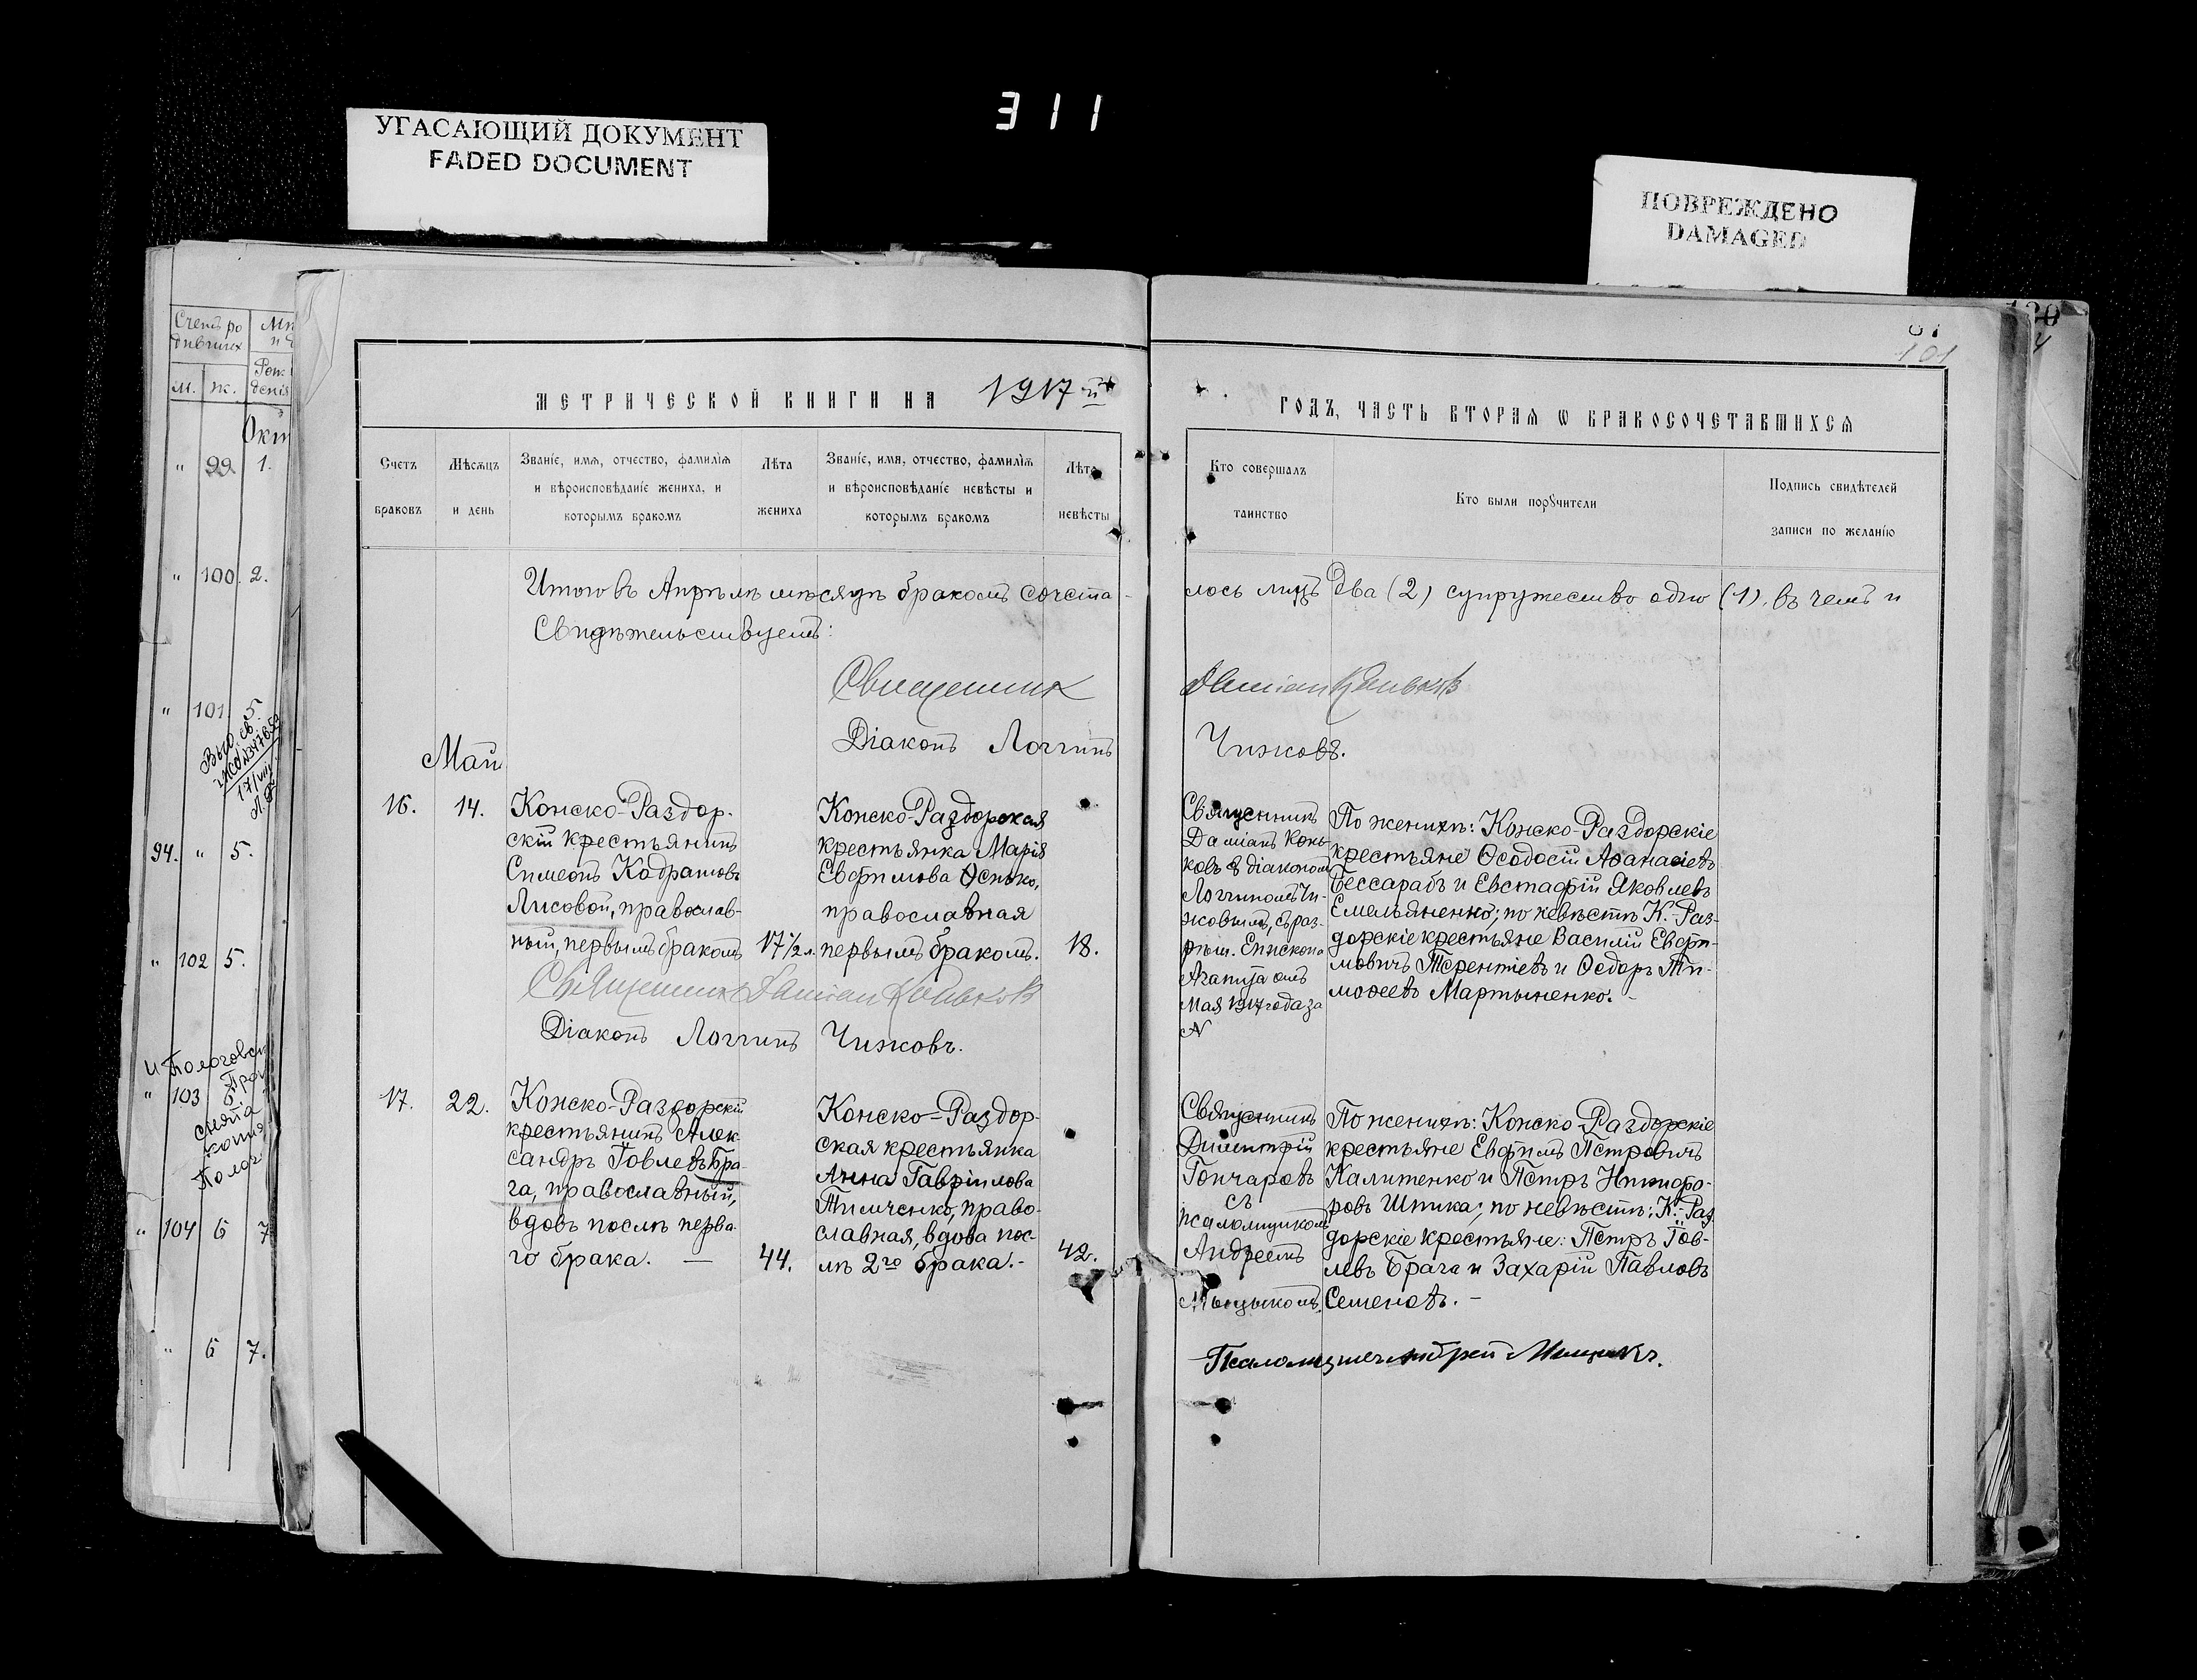 311
УГАСАЮЩИЙ ДОКУМЕНТ
FADED DOCUMENT
ПОВРЕЖДЕНО
DAMAGED
101
МЕТРИЧЕСКОЙ КНИГИ НА 1917 й
ГОДЪ, ЧАСТЬ ВТОРАѦ Ѡ БРАКОСОЧЕТАВШИХСѦ
Счетъ браковъ
Мѣсѧцъ и день
Званіе, имѧ, отчество, фамилїѧ
и вѣроисповѣданіе жениха, и
которымъ бракомъ
Лѣта жениха
Званіе, имя, отчество, фамилїѧ
и вѣроисповѣданіе невѣсты и
которымъ бракомъ
Лѣта невѣсты
Кто совершалъ
таинство
Кто были порꙋчители
Подпись свидѣтелей
записи по желанію
Итого въ Апрѣлѣ мѣсяцѣ бракомъ сочета-
лось лицъ два (2) супружество одно (1), въ чемъ и
Свидѣтельствуемъ:
Священникъ Даміанъ Коньковъ
Діаконъ Логгинъ Чижовъ.
Май
16.
14.
Конско-Раздор-
скій крестьянинъ
Симеонъ Кодратовъ
Лисовой, православ-
ный, первымъ бракомъ
17 1/2 л.
Конско-Раздорская
крестьянка Марія
Евфимова Осько,
православная
первымъ бракомъ.
18.
Священникъ
Даміанъ Конь-
ковъ съ діакономъ
Логгиномъ Чи-
жовымъ, съ раз-
рѣш. Епископа
Агапита отъ
Мая 1917 года за
№
По женихѣ: Конско-Раздорскіе
крестьяне Ѳеодосій Аѳанасіевъ
Бессарабъ и Евстафій Яковлевъ
Емельяненко; по невѣстѣ К.-Раз-
дорскіе крестьяне Василій Евфи-
мовичъ Терентіевъ и Ѳедоръ Ти-
моѳеевъ Мартыненко.-
Священникъ Даміанъ Коньковъ
Діаконъ Логгинъ Чижовъ.
17.
22.
Конско-Раздорскій
крестьянинъ Алек-
сандръ Іовлевъ Бра-
га, православный,
вдовъ послѣ перва-
го брака. —
44.
Конско-Раздор-
ская крестьянка
Анна Гавріилова
Тимченко, право-
славная, вдова пос-
лѣ 2го брака.-
42.
Священникъ
Димитрій
Гончаровъ
съ
псаломщикомъ
Андреемъ
Мыцыкомъ.
По женихѣ: Конско-Раздорскіе
крестьяне Евфимъ Петровичъ
Калитенко и Петръ Никифо-
ровъ Шпика; по невѣстѣ: К.-Раз-
дорскіе крестьяне: Петръ Іов-
левъ Брага и Захарій Павловъ
Семеновъ.-
Псаломщикъ Андрей Мыцыкъ.
Счетъ ро
дившихъ
м.
ж.
99.
1.
100.
2.
101
5.
94.
5.
102
5.
103
104
6
7
6
7.